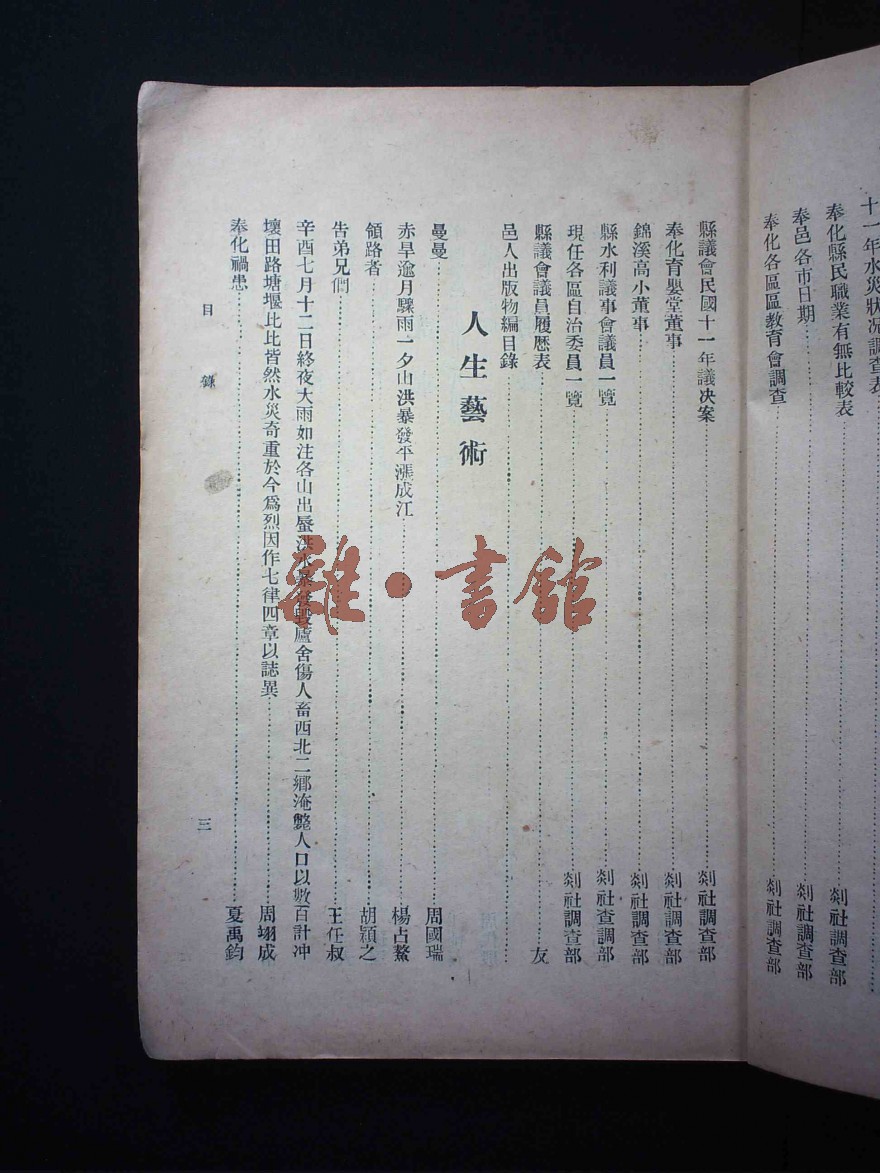 十一年水災狀况調查表
奉化縣民職業有無比較表 剡社調查部
奉邑各市日期 剡社調查部
奉化各區區教育會調查 剡社調查部
縣議會民國十一年議决案 剡社調查部
奉化育嬰堂董事 剡社調查部
錦溪高小董事 剡社調查部
縣水利議事會議員一覽 剡社查調部
現任各區自治委員一覽 剡社調查部
縣議會議員履歷表 友
邑人出版物編目錄
人生藝術
曼曼 周國瑞
赤旱逾月驟雨一夕山洪暴發平漲成江 楊占鰲
領路者 胡穎之
告弟兄們 王任叔
辛酉七月十二日終夜大雨如注各山出蜃洪水暴發毀廬舍傷人畜西北二鄉淹斃人口以數百計冲
壞田路塘堰比比皆然水災奇重於今爲烈因作七律四章以誌異 周翊成
奉化禍患 夏禹鈞
目錄
三
雜·書館